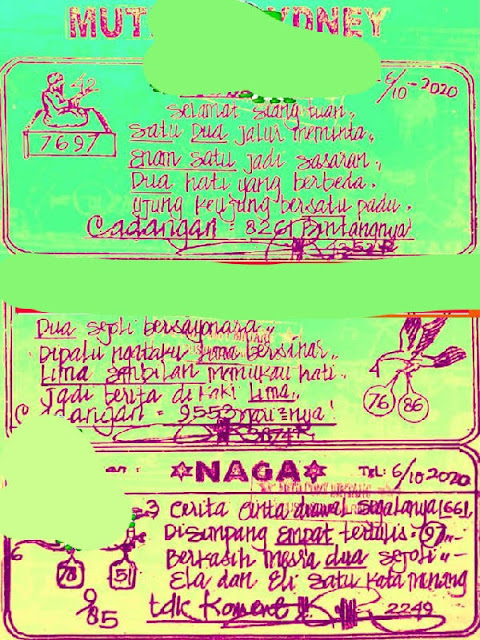 6/10-2020
7697
Selamat siang tuan,
Satu Dua jalur meminta,
Enam satu jadi sasaran,
Dua hati yang berbeda.
Ujung keujung bersatu padu.
Cadangan = 8261 Bintangnya!
4352
Dua sejoli bersayonara,,
lima bersinar,,
Lima sembilan memukau hati,
Jadi berita di kaki Lima,,
Cadangan = 9553
5874
76 86
NAGA
TEL: 6/10 2020
3 Cerita cinta segalanya 1661,
Disimpang empat tertulis. 97,,
Berkasih mesra dua sejoli,,
Ela dan Eli satu kata menang
tdk Koment!!
2249
78 51
85